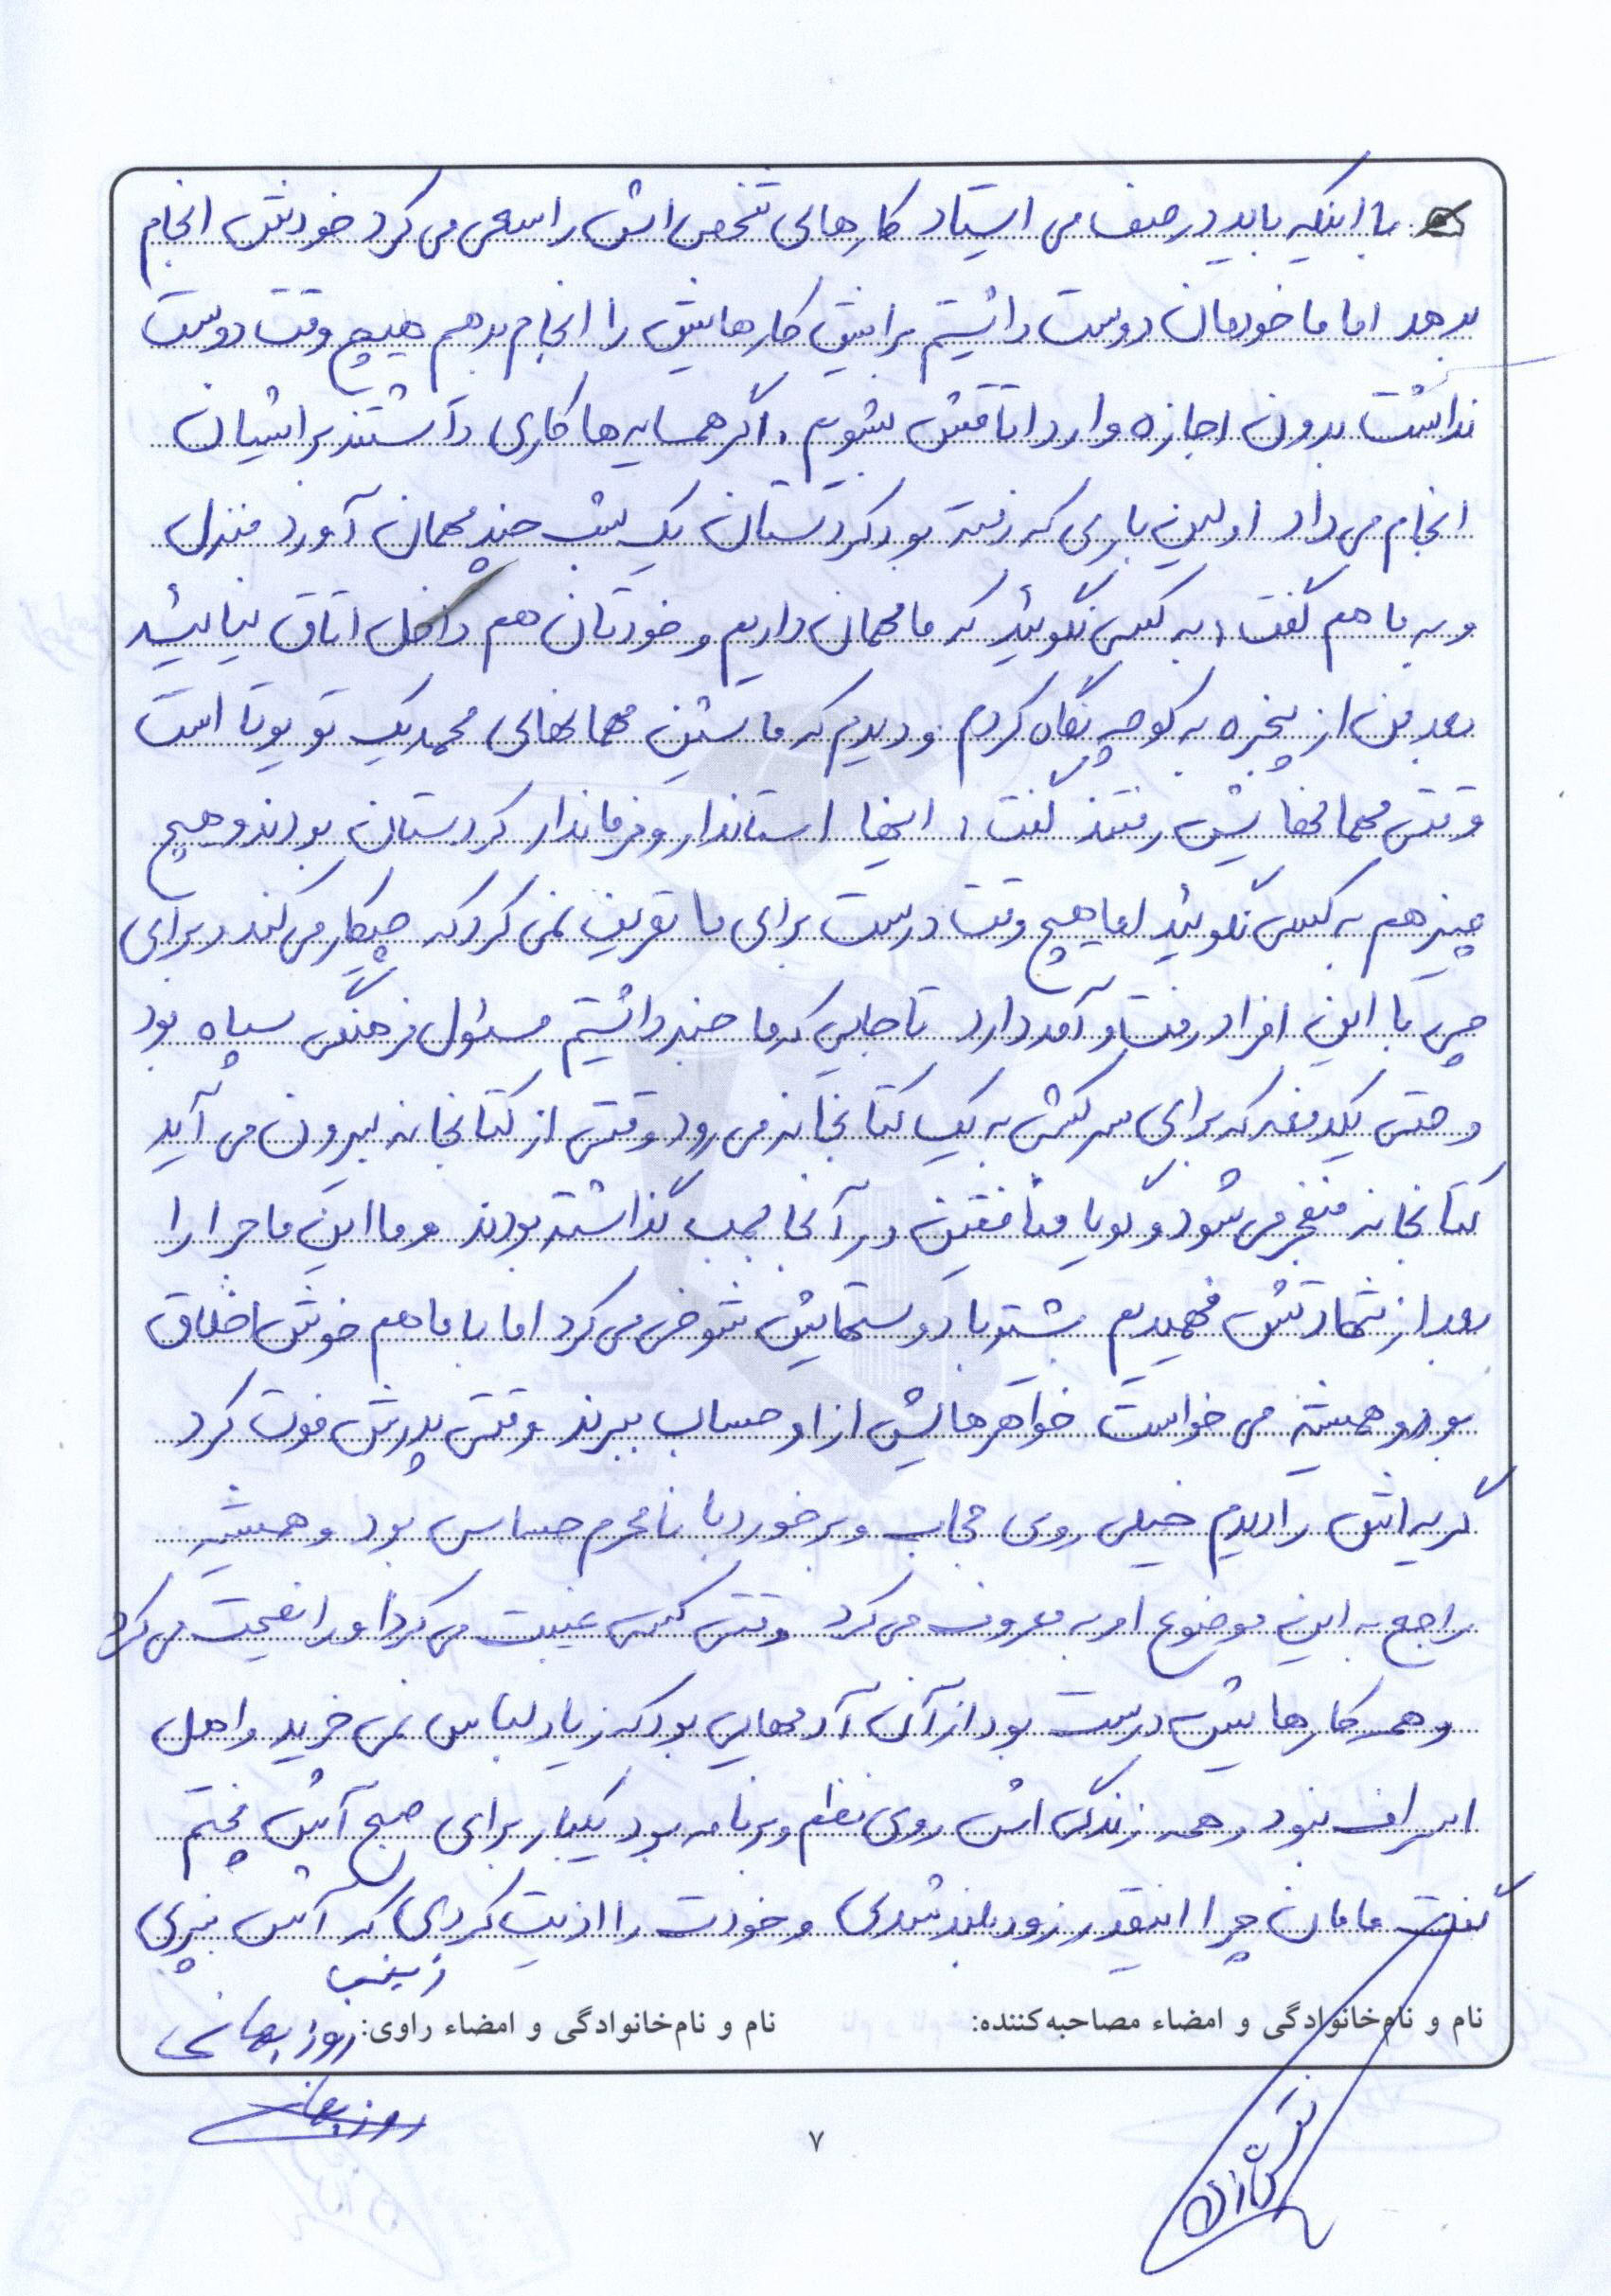 با اینکه باید در صف می ایستاد کارهای شخصی اش را سعی می کرد خودش انجام
بدهد اما ما خودمان دوست داشتیم برایش کارهایش را انجام بدهم هیچ وقت دوست
نداشت بدون اجازه وارد اتاقش بشویم، اگر همسایه ها کاری داشتند برایشان
انجام می داد اولین باری که رفته بود کردستان یک شب چند مهمان آورد منزل
و به ما هم گفت، به کسی نگوئید که ما مهمان داریم و خودتان هم داخل اتاق نیائید
بعد من از پنجره به کوچه نگاه کردم و دیدم که ماشین مهمانهای محمد یک تویوتا است
وقتی مهمانهایش رفتند گفت، اینها استاندار و فرماندار کردستان بودند و هیچ
چیز هم به کسی نگوئید اما هیچ وقت درست برای ما تعریف نمی کرد که چیکار می کند و برای
چی با این افراد رفت و آمد دارد تا جایی که ما خبر داشتیم مسئول فرهنگی سپاه بود
و حتی یکدفعه که برای سرکشی به یک کتابخانه می رود وقتی از کتابخانه بیرون می آید
کتابخانه منفجر می شود و گویا منافقین در آنجا بمب گذاشته بودند و ما این ماجرا را
بعد از شهادتش فهمیدیم بیشتر با دوستهایش شوخی می کرد اما با ما هم خوش اخلاق
بود و همیشه می خواست خواهرهایش از او حساب ببرند وقتی پدرش فوت کرد
گریه اش را دیدم خیلی روی حجاب و برخورد با نامحرم حساس بود و همیشه
راجع به این موضوع امر به معروف می کرد وقتی کسی غیبت می کرد او را نصیحت می کرد
و همه کارهایش درست بود از آن آدمهایی بود که زیاد لباس نمی خرید و اهل
اسراف نبود و همه زندگی اش روی نظم و برنامه بود یکبار برای صبح آش پختم
گفت مامان چرا اینقدر زود بلند شدی و خودت را اذیت کردی که آش بپزی
نام و نام‌خانوادگی و امضاء مصاحبه‌کننده: نام و نام‌خانوادگی و امضاء راوی: زینب روزبهانی
روزبهانی
۷